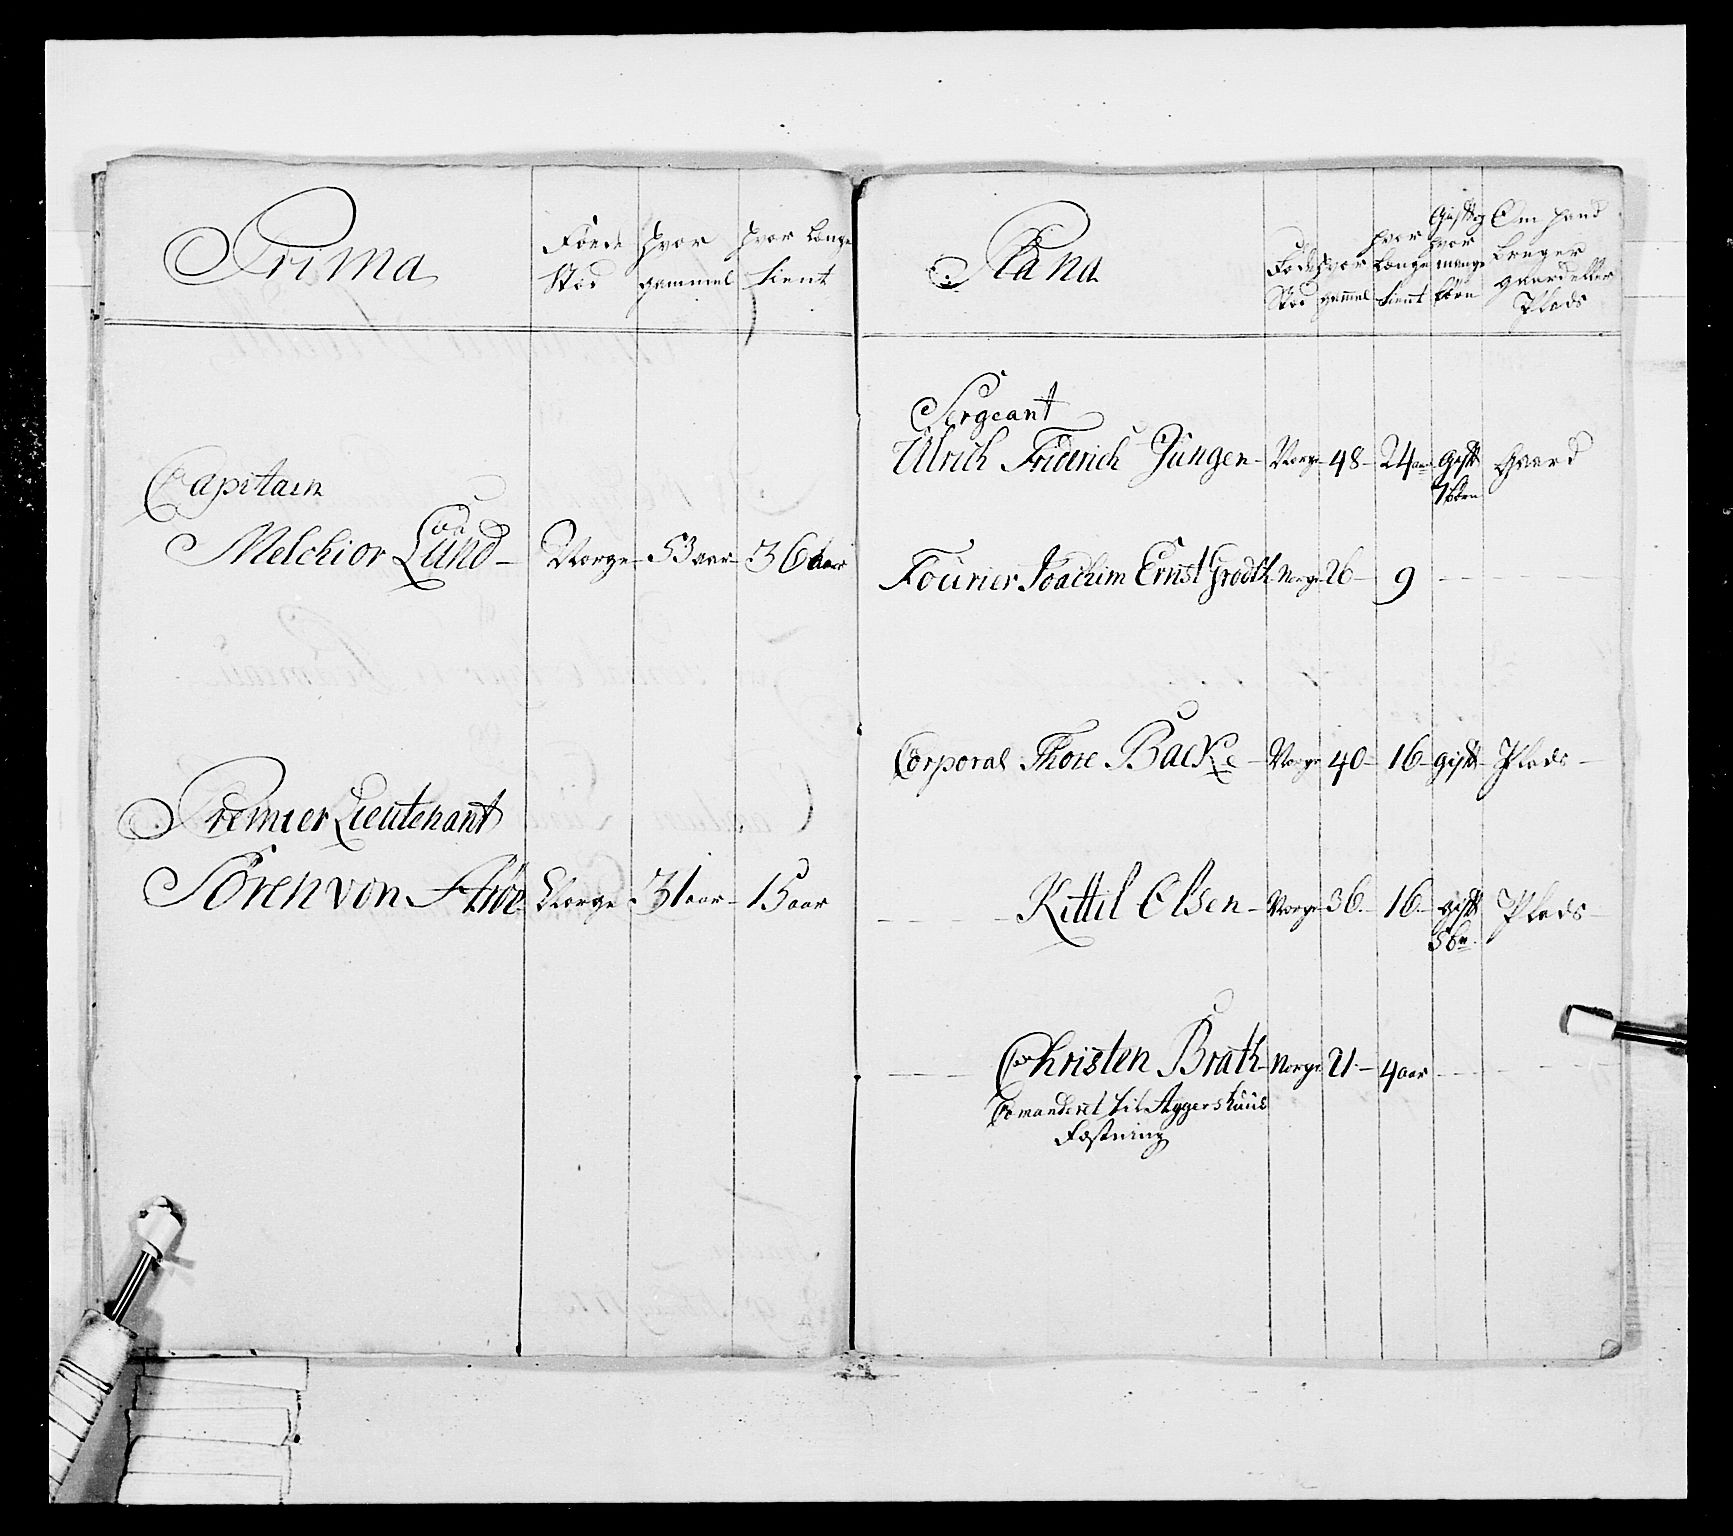 Prima
Föede Stæd
hvor gammel
hvor længe tient
Capitain
Melchior Lund - Norge - 53 aar - 36 aar
Premier Lieutenant
Sören von Norge - 31 aar - 15 aar
Plana
Fødestæd
hvor gammel
hvor længe tient
Gift og hvor mange børn
Om hand bruger gaard eller Plads
Sergeant
Ulrich Friderich Jüngen - Norge - 48 - 24 aar gift Gaard
7 børn
Fourier Joachim Ernst Grodth - Norge 26 - 9
Corporal Thore Backe - Norge 40 - 16 - gift - Plads -
Kittil Olsen - Norge 36 - 16 - gift Plads -
5 bn
Christen Brath - Norge 21 - 4 aar
Comanderet til Aggershuus
Fæstning